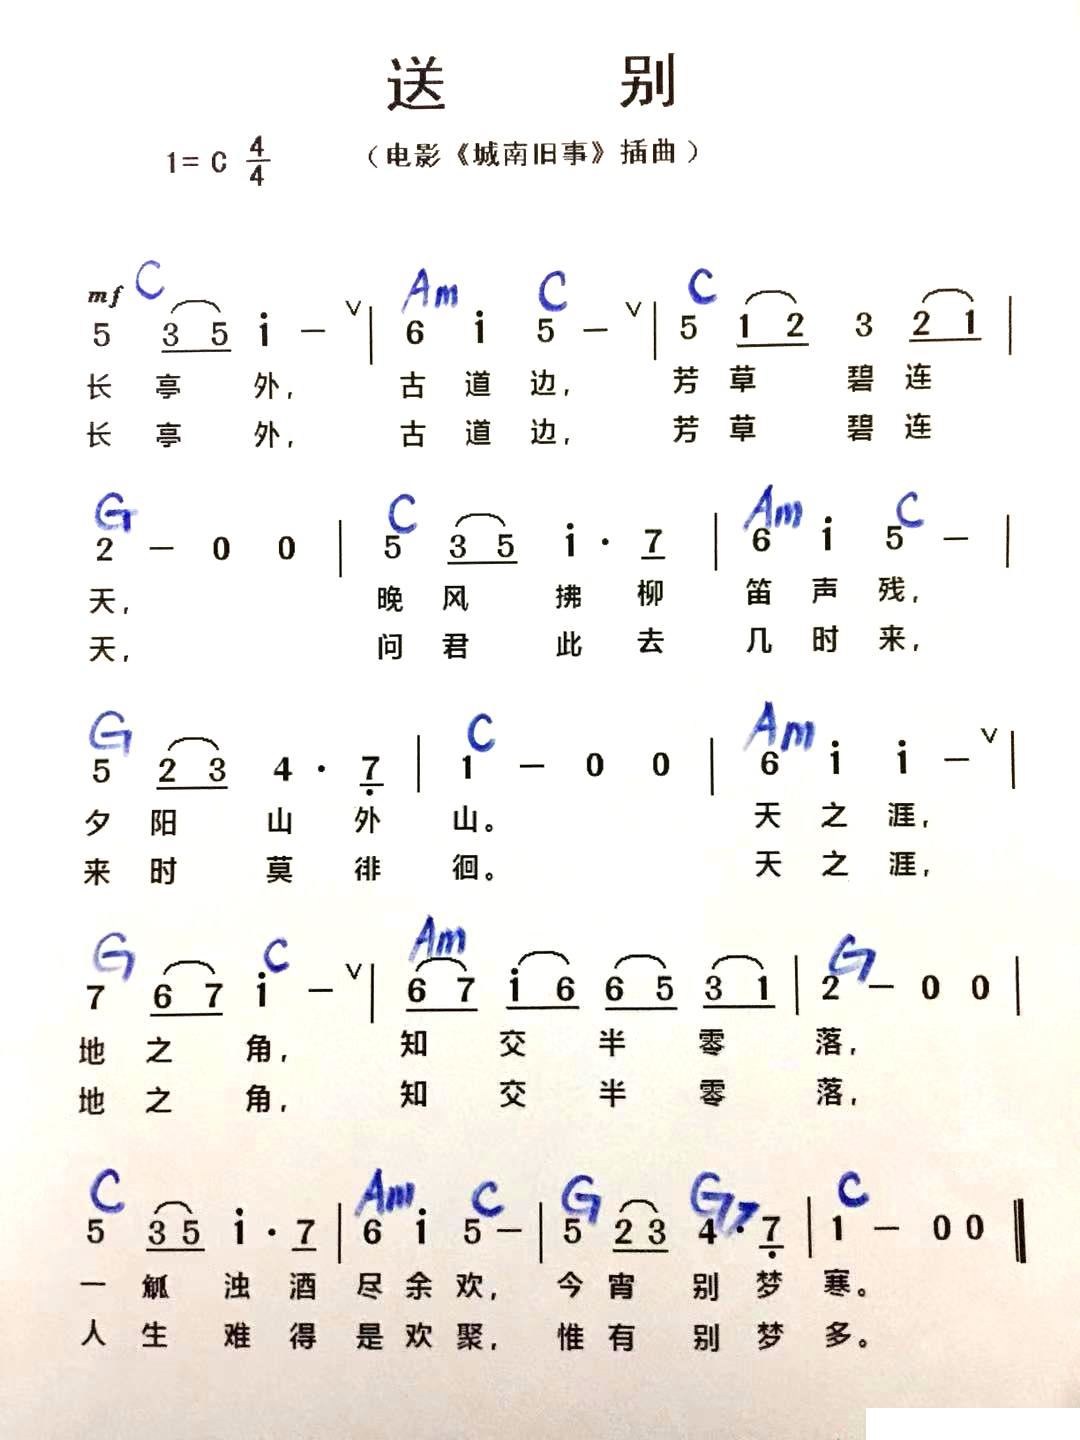 送 别
1= C 4/4 （电影《城南旧事》插曲）
mf C Am C C
5 3 5 i － ∨ | 6 i 5 － ∨ | 5 1 2 3 2 1 |
长 亭 外， 古 道 边， 芳 草 碧 连
长 亭 外， 古 道 边， 芳 草 碧 连
G C Am C
2 － 0 0 | 5 3 5 i · 7 | 6 i 5 － |
天， 晚 风 拂 柳 笛 声 残，
天， 问 君 此 去 几 时 来，
G C Am
5 2 3 4 · 7 | 1 － 0 0 | 6 i i － ∨ |
夕 阳 山 外 山。 天 之 涯，
来 时 莫 徘 徊。 天 之 涯，
G C Am G
7 6 7 i － ∨ | 6 7 i 6 6 5 3 1 | 2 － 0 0 |
地 之 角， 知 交 半 零 落，
地 之 角， 知 交 半 零 落，
C Am C G G7 C
5 3 5 i · 7 | 6 i 5 － | 5 2 3 4 · 7 | 1 － 0 0 ‖
一 觚 浊 酒 尽 余 欢， 今 宵 别 梦 寒。
人 生 难 得 是 欢 聚， 惟 有 别 梦 多。